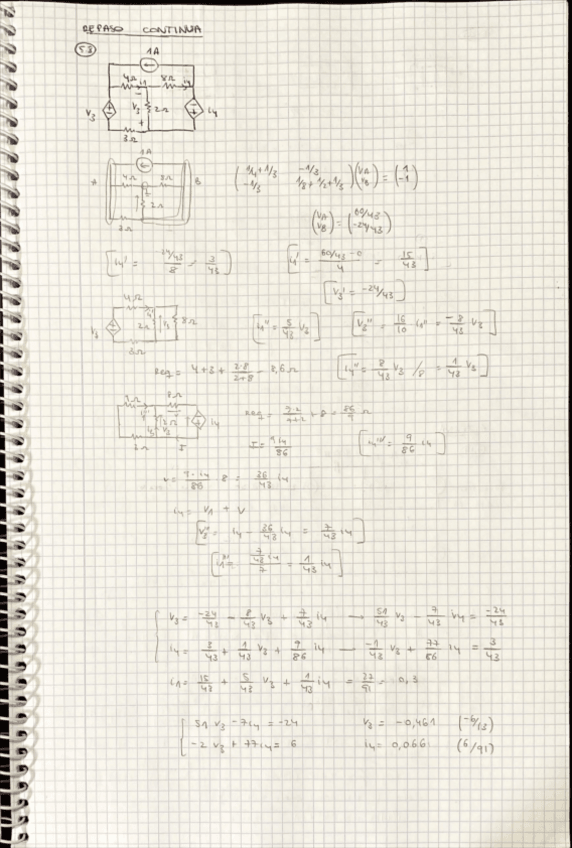 REPASO CONTINUA
5.3
1A
4Ω i1 8Ω i4
V3 V3 2Ω i4
3Ω
1A
A 4Ω 8Ω B
2Ω
3Ω
(1/4+1/3 -1/3) (VA) = (1)
(-1/3 1/8+1/2+1/3) (VB) (-1)
(VA) = (60/43)
(VB) (-24/43)
[i4' = 24/43 / 8 = 3/43] [i1' = 60/43 - 0 / 4 = 15/43]
[V3' = -24/43]
4Ω
V3 2Ω 8Ω
3Ω
[i1'' = 5/43 V3] [V3'' = 16/10 i1'' = -8/43 V3]
Req = 4+3 + 2·8/2+8 = 8,6Ω [i4'' = 8/43 V3 /8 = 1/43 V3]
8Ω
i4
3Ω I
I = 9 i4/86 [i4''' = 9/86 i4]
V = 9·i4/86 8 = 36/43 i4
i4 = V1 + V
= i4 - 36/43 i4 = 7/43 i4]
7/43 i4 / 7 = 1/43 i4]
V3 = -24/43 - 8/43 V3 + 7/43 i4 → 51/43 V3 - 7/43 i4 = -24/43
i4 = 3/43 + 1/43 V3 + 9/86 i4 — -1/43 V3 + 77/86 i4 = 3/43
i1 = 15/43 + 5/43 V3 + 1/43 i4 = 27/91 = 0,3
51 V3 - 7i4 = -24 V3 = -0,461 (-6/13)
-2 V3 + 77i4 = 6 i4 = 0,066 (6/91)